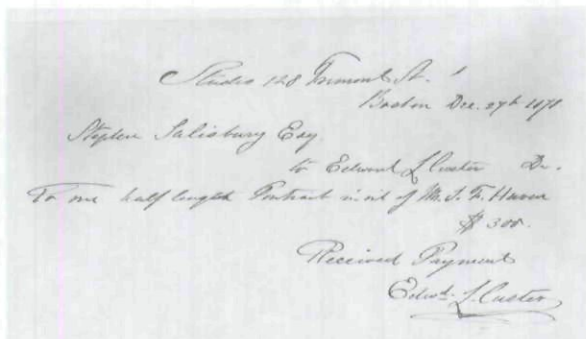 Studio 128 Tremont St.
Boston Dec. 27th 1878
Stephen Salisbury Esq
to Edward L Custer Dr.
To one half length Portrait in oil of Mr. S. F. Haven
$300.
Received Payment
Edwd. L. Custer